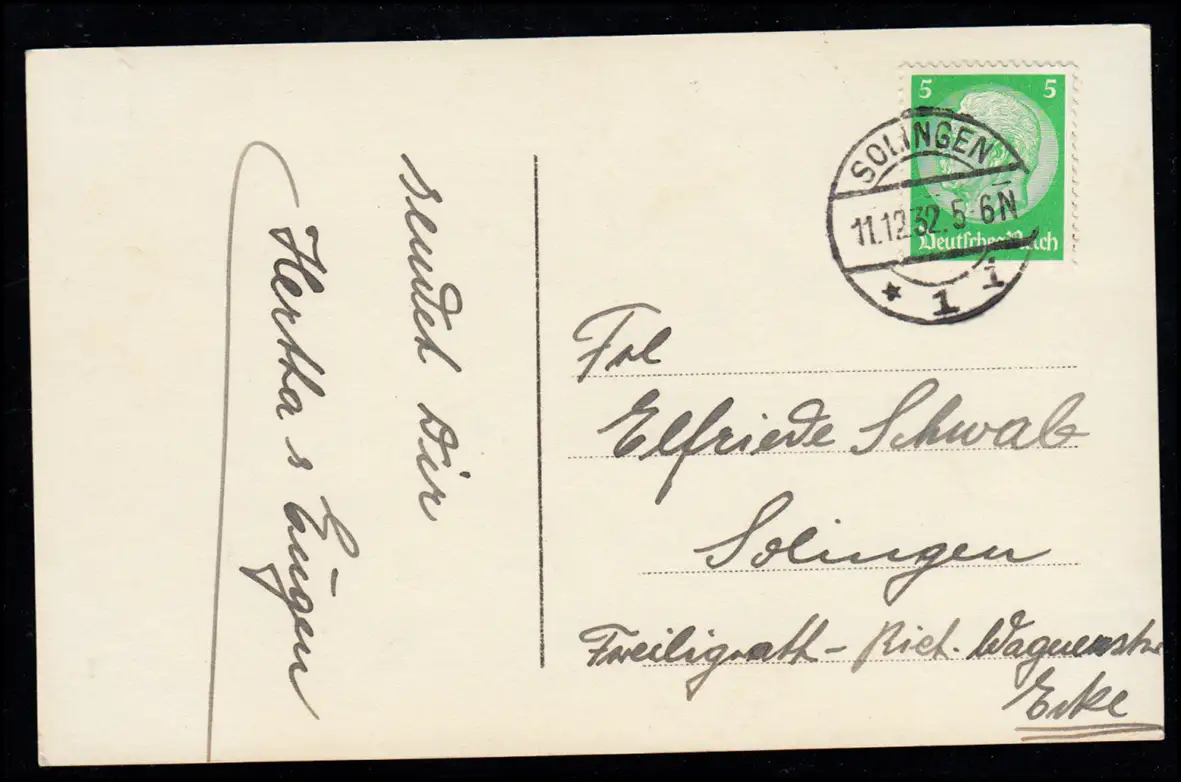 sendet Dir
Hertha & Eugen
5 5
Deutsches Reich
SOLINGEN
11.12.32. 5-6N
* 1 i
Frl
Elfriede Schwab
Solingen
Freiligrath - Rich. Wagnerstr
Ecke